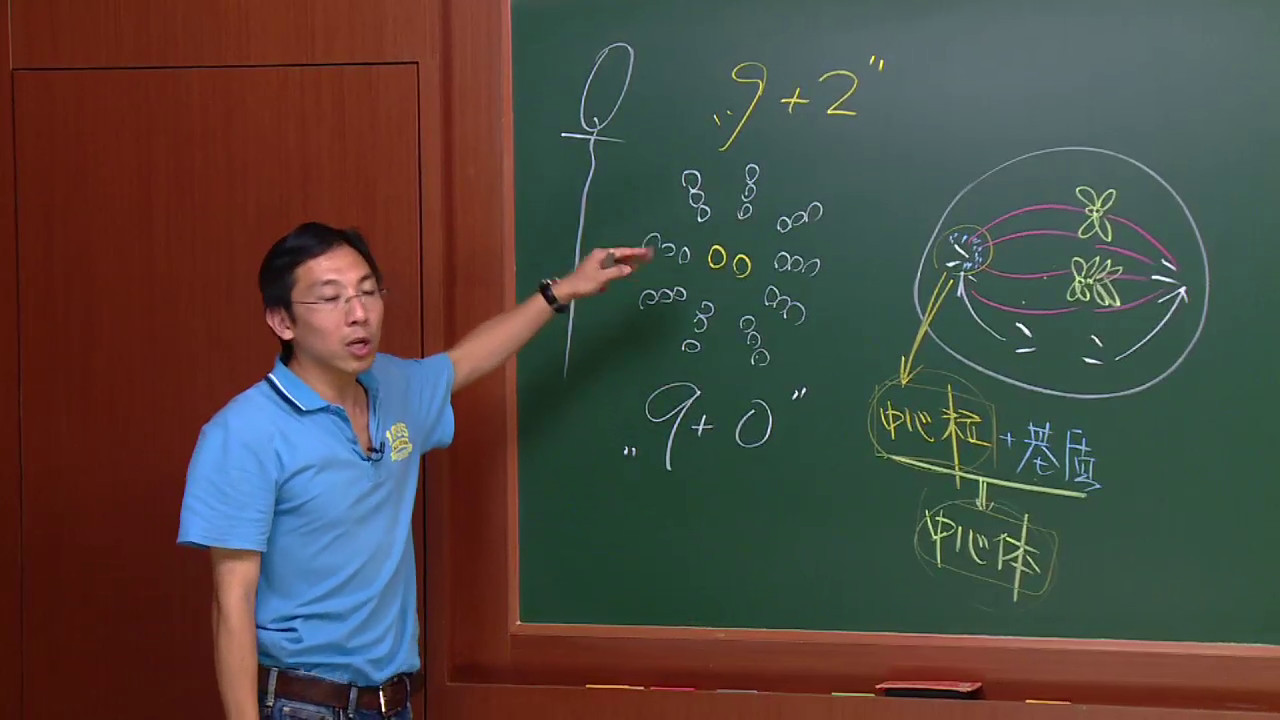 "9+2"
"9+0"
中心粒+基质
中心体